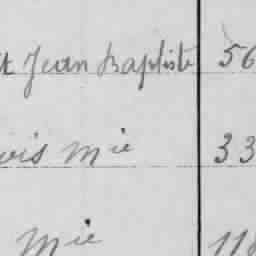 Jean Baptiste 56
Mie 33
Mie 118